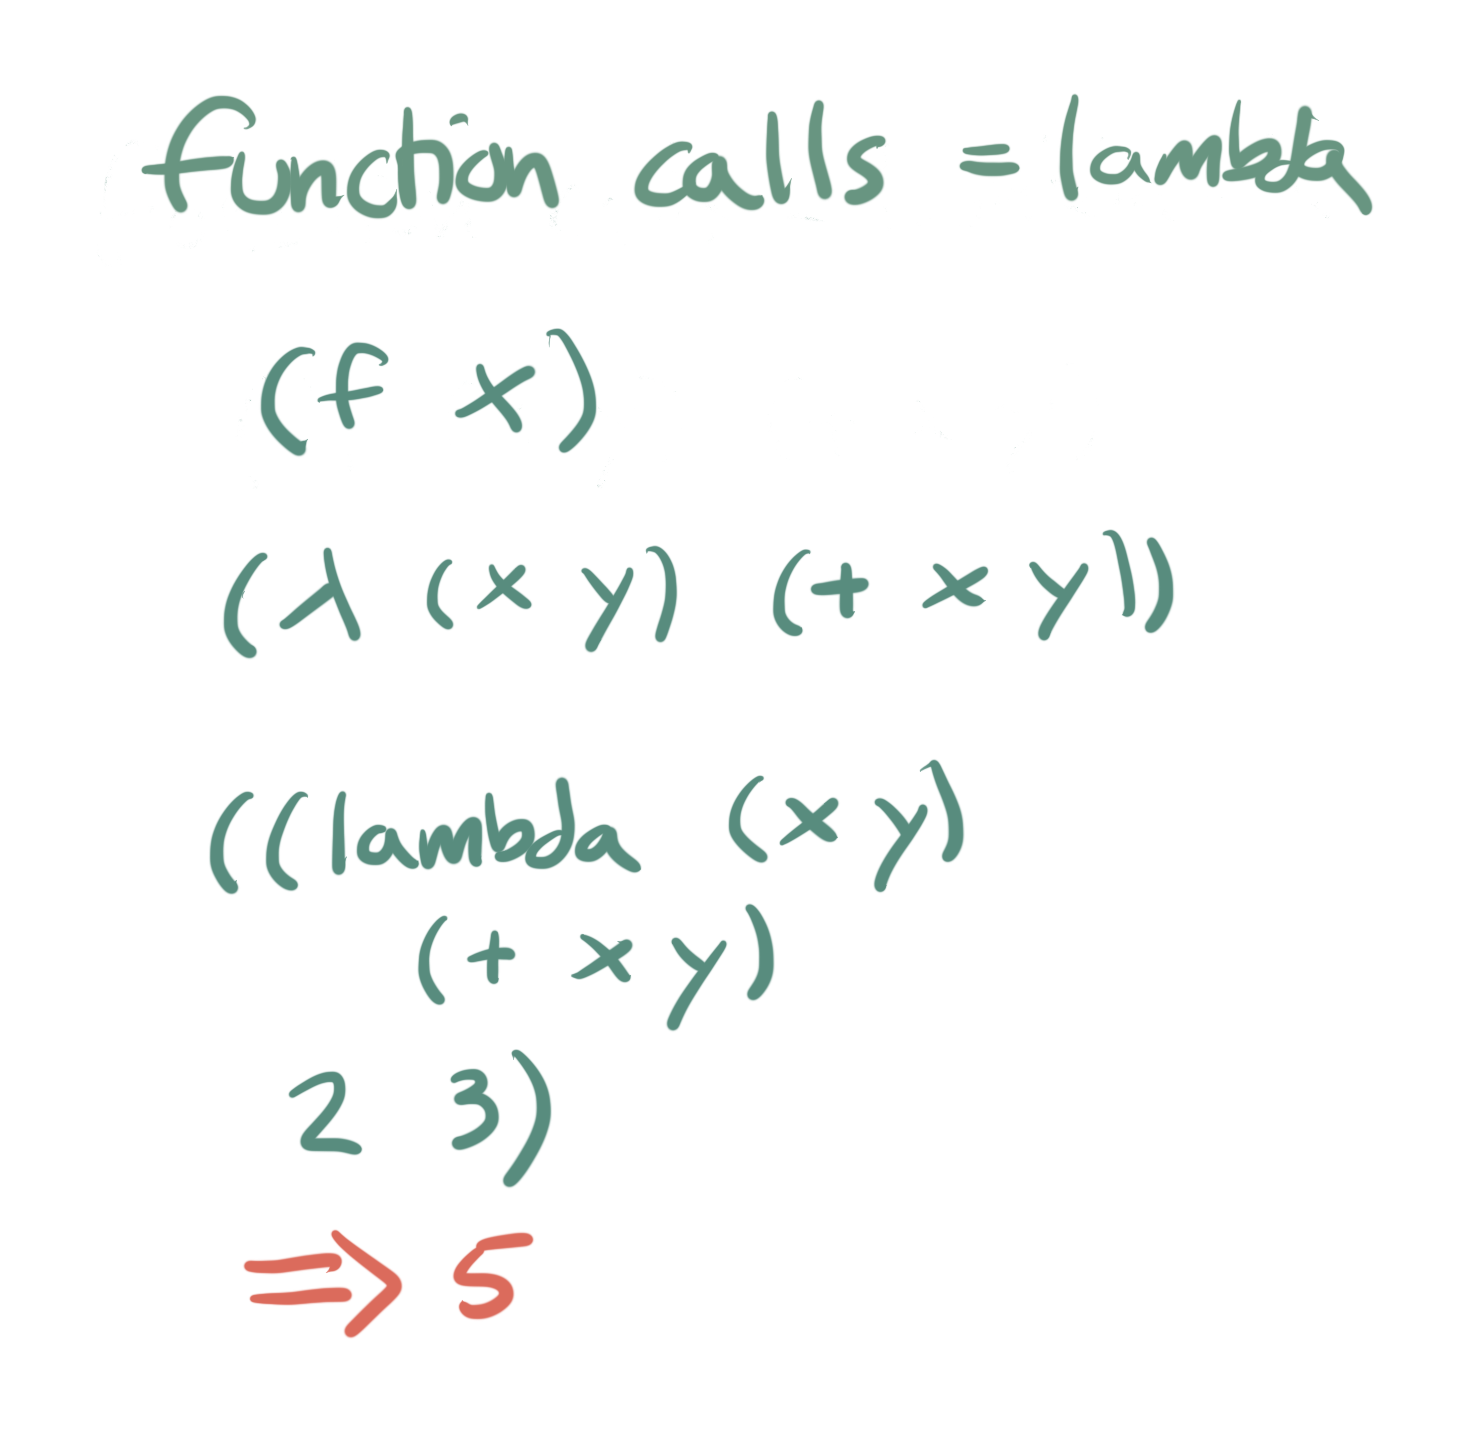 function calls = lambda
(f x)
(λ (x y) (+ x y))
((lambda (x y)
(+ x y)
2 3)
=> 5